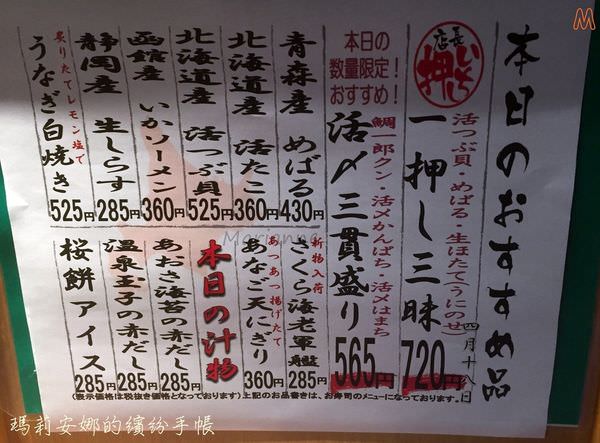 M
本日のおすすめ品
四月十八日
店長
いち
押し
活つぶ貝・めばる・生ほたて(うにのせ)
一押し三昧
720円
本日の
数量限定!
おすすめ!
鯛一郎クン・活〆かんぱち・活〆はまち
活〆三貫盛り
565円
青森産 めばる 430円
北海道産 活たこ 360円
北海道産 活つぶ貝 525円
函館産 いかソーメン 360円
静岡産 生しらす 285円
炙りたてレモン塩で
うなぎ白焼き 525円
新物入荷
さくら海老軍艦 285円
あつあつ揚げたて
あなご天にぎり 360円
本日の汁物
あおさ海苔の赤だし 285円
温泉玉子の赤だし 285円
桜餅アイス 285円
(表示価格は税抜き価格となっております)上記のお品書きは、お寿司のメニューになっております。
Marianna
瑪莉安娜的繽紛手帳